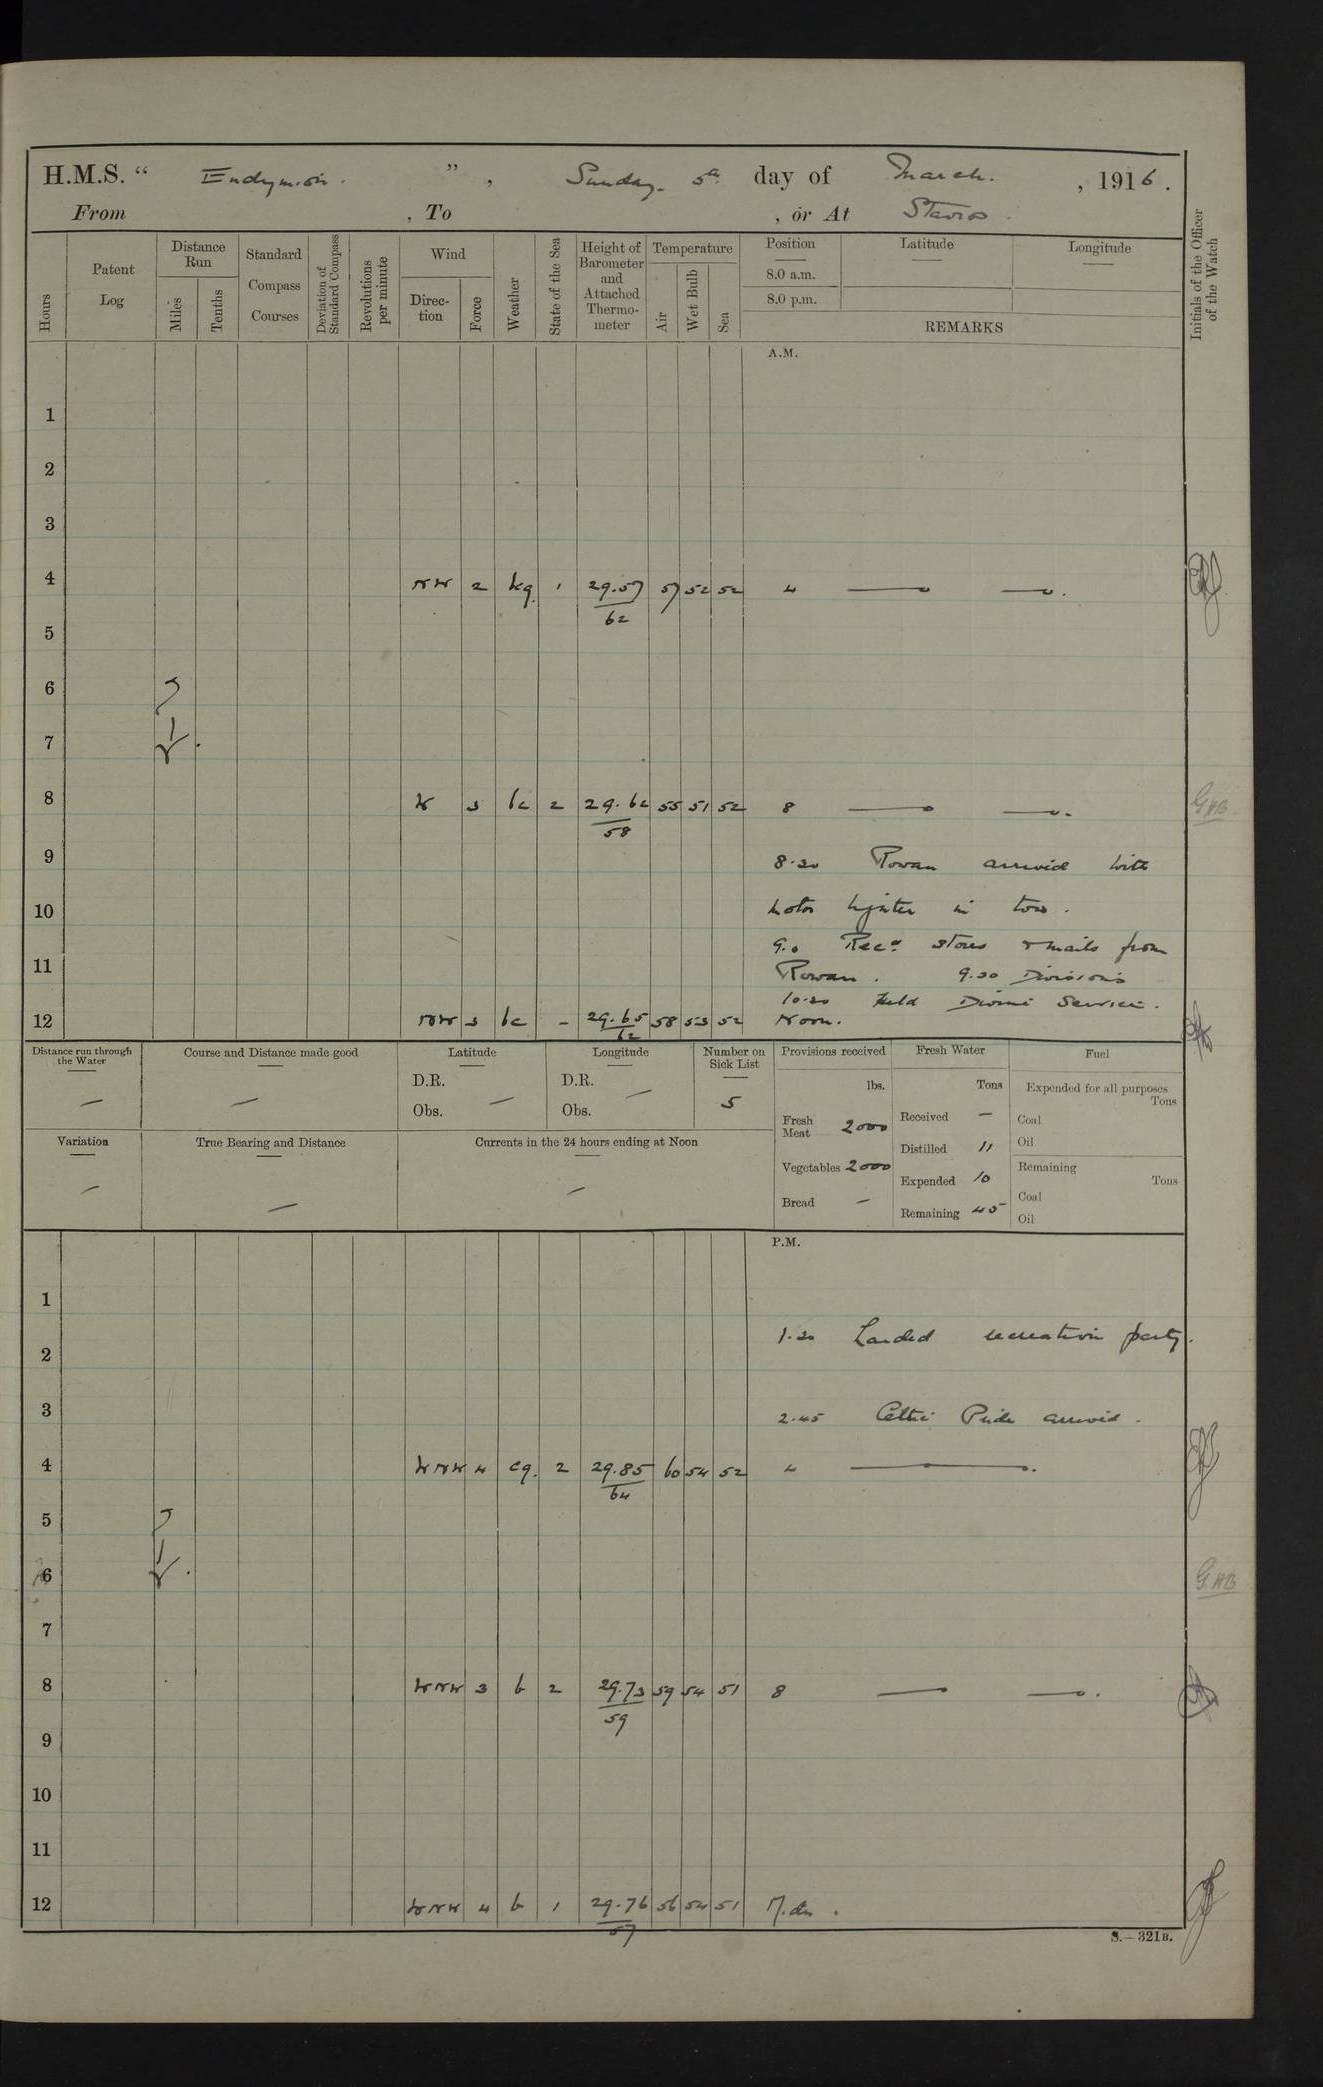 H.M.S. " Endymion. " , Sunday. 5th day of March. , 1916.
From , To , or At Stavros.
Hours
Patent Log
Distance Run
Miles
Tenths
Standard Compass Courses
Deviation of Standard Compass
Revolutions per minute
Wind
Direction
Force
Weather
State of the Sea
Height of Barometer and Attached Thermometer
Temperature
Air
Wet Bulb
Sea
Position
8.0 a.m.
8.0 p.m.
Latitude
Longitude
REMARKS
Initials of the Officer of the Watch
A.M.
1
2
3
4 NW 2 1 29.57 57 52 52 4 — —.
62
5
6
7
8 W 3 bc 2 29.62 55 51 52 8 — —. GHB
58
9 8.30 Rowan arrived with
10 motor lighter in tow.
9.0 Recd stores & mails from
11 Rowan. 9.30 Divisions
10.30 Held Divine Service.
12 NW 3 bc - 29.65 58 53 52 Noon.
62
Distance run through the Water
—
Course and Distance made good
—
Latitude
D.R.
Obs. —
Longitude
D.R. —
Obs.
Number on Sick List
5
Provisions received
lbs.
Fresh Meat 2000
Vegetables 2000
Bread —
Fresh Water
Tons
Received —
Distilled 11
Expended 10
Remaining 45
Fuel
Expended for all purposes
Tons
Coal
Oil
Remaining
Tons
Coal
Oil
Variation
—
True Bearing and Distance
—
Currents in the 24 hours ending at Noon
—
P.M.
1
1.30 Landed recreation party.
2
3 2.45 Celtic Pride arrived.
4 WNW 4 cq. 2 29.85 60 54 52 4 —.
64
5
6 GHB
7
8 WNW 3 b 2 29.73 59 54 51 8 — —.
59
9
10
11
12 WNW 4 b 1 29.76 56 54 51 M.dn.
57
S.—321B.